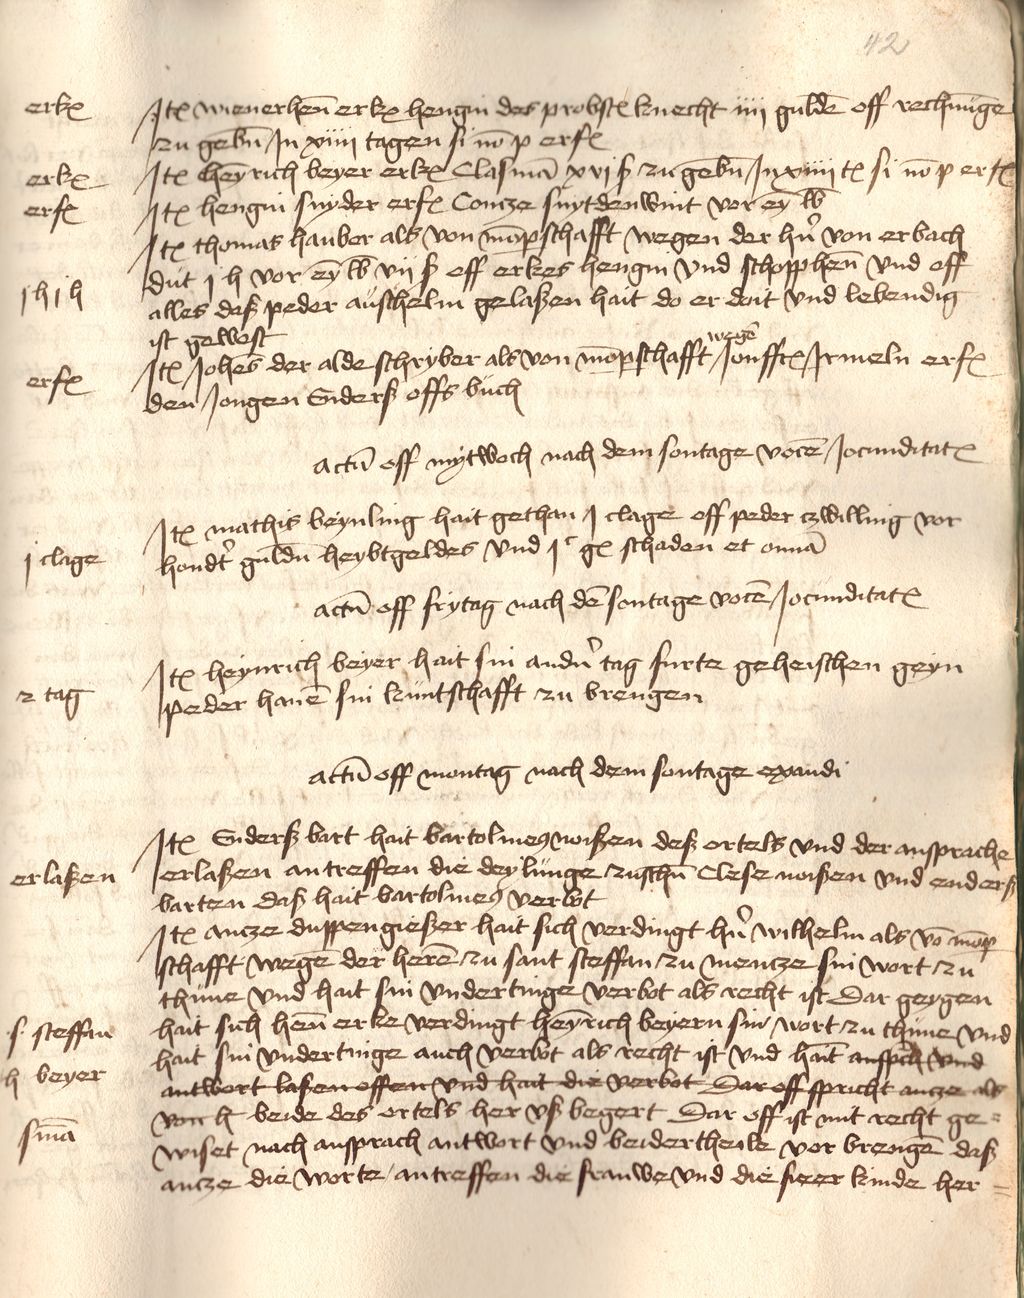 42
erkꝫ Itꝫ wienerhen̄ erkꝫ hengin des probstꝫ knecht iiii guldē off rechnūge
zu gebn̄ In xiiii tagen si nō p erfꝫ
erkꝫ Itꝫ heyrich beyer erkꝫ Clasmā xvi ß zu gebn̄ In xiiii tꝫ si nō p erfꝫ
erfꝫ Itꝫ hengin snyder erfꝫ Concze snytdenwint vor ey lb
Itꝫ thomas hauber als von mōperschafft wegen der hn̄ von erbach
dut i h vor ey lb vii ß off erkes hengin vnd schopphen̄ vnd off
i h i h alles daß peder auschelm gelaßen hait do er doit vnd lebendig
ist gewest
erfꝫ Itꝫ Johēs der alde schryber als von mōperschafft wegē Jonffrꝫ Irmeln erfꝫ
den Jongen Enderß offs buch
actū off mytwoch nach dem sontage vocē Jocunditatꝫ
Itꝫ mathis beynling hait gethan i clage off peder zwilling vor
i clage hondt guldn̄ heybtgeldes vnd i c gꝫ schaden et om̄ā
actū off frytag nach dē sontage vocē Jocunditatꝫ
Itꝫ heynrich beyer hait sin andn̄ tag furte geheischen geyn
2 tag peder hanē sin kuntschafft zu brengen
actū off montag nach dem sontage exaudi
Itꝫ Enderß bart hait bartolmeꝯ noißen deß ortels vnd der ansprache
erlaßen erlaßen antreffen die deylunge zuschn̄ Clese noißen vnd enderß
barten daß hait bartolmeꝯ verbot
Itꝫ ancze duppengießer hait sich verdingt hn̄ wilhelm als vō mōp
schafft wegē der herē zu sant steffan zu mencze sin wort zu
thune vnd hait sin vndertinge verbot als recht ist Dar geygen
ß steffan hait sich hen̄ erke verdingt heyrich beyern sin wort zu thune vnd
hait sin vndertinge auch verbot als recht ist vnd hait anspch vnd
h beyer antwort laßen offen vnd hait die verbot Dar off spricht ancze als
von h beide des ortels her vß begert Dar off ist mit recht ge=
smā wiset nach ansprach antwort vnd beidertheile vor brengē daß
ancze die worte antreffen die frauwe vnd die sieer kinde her =